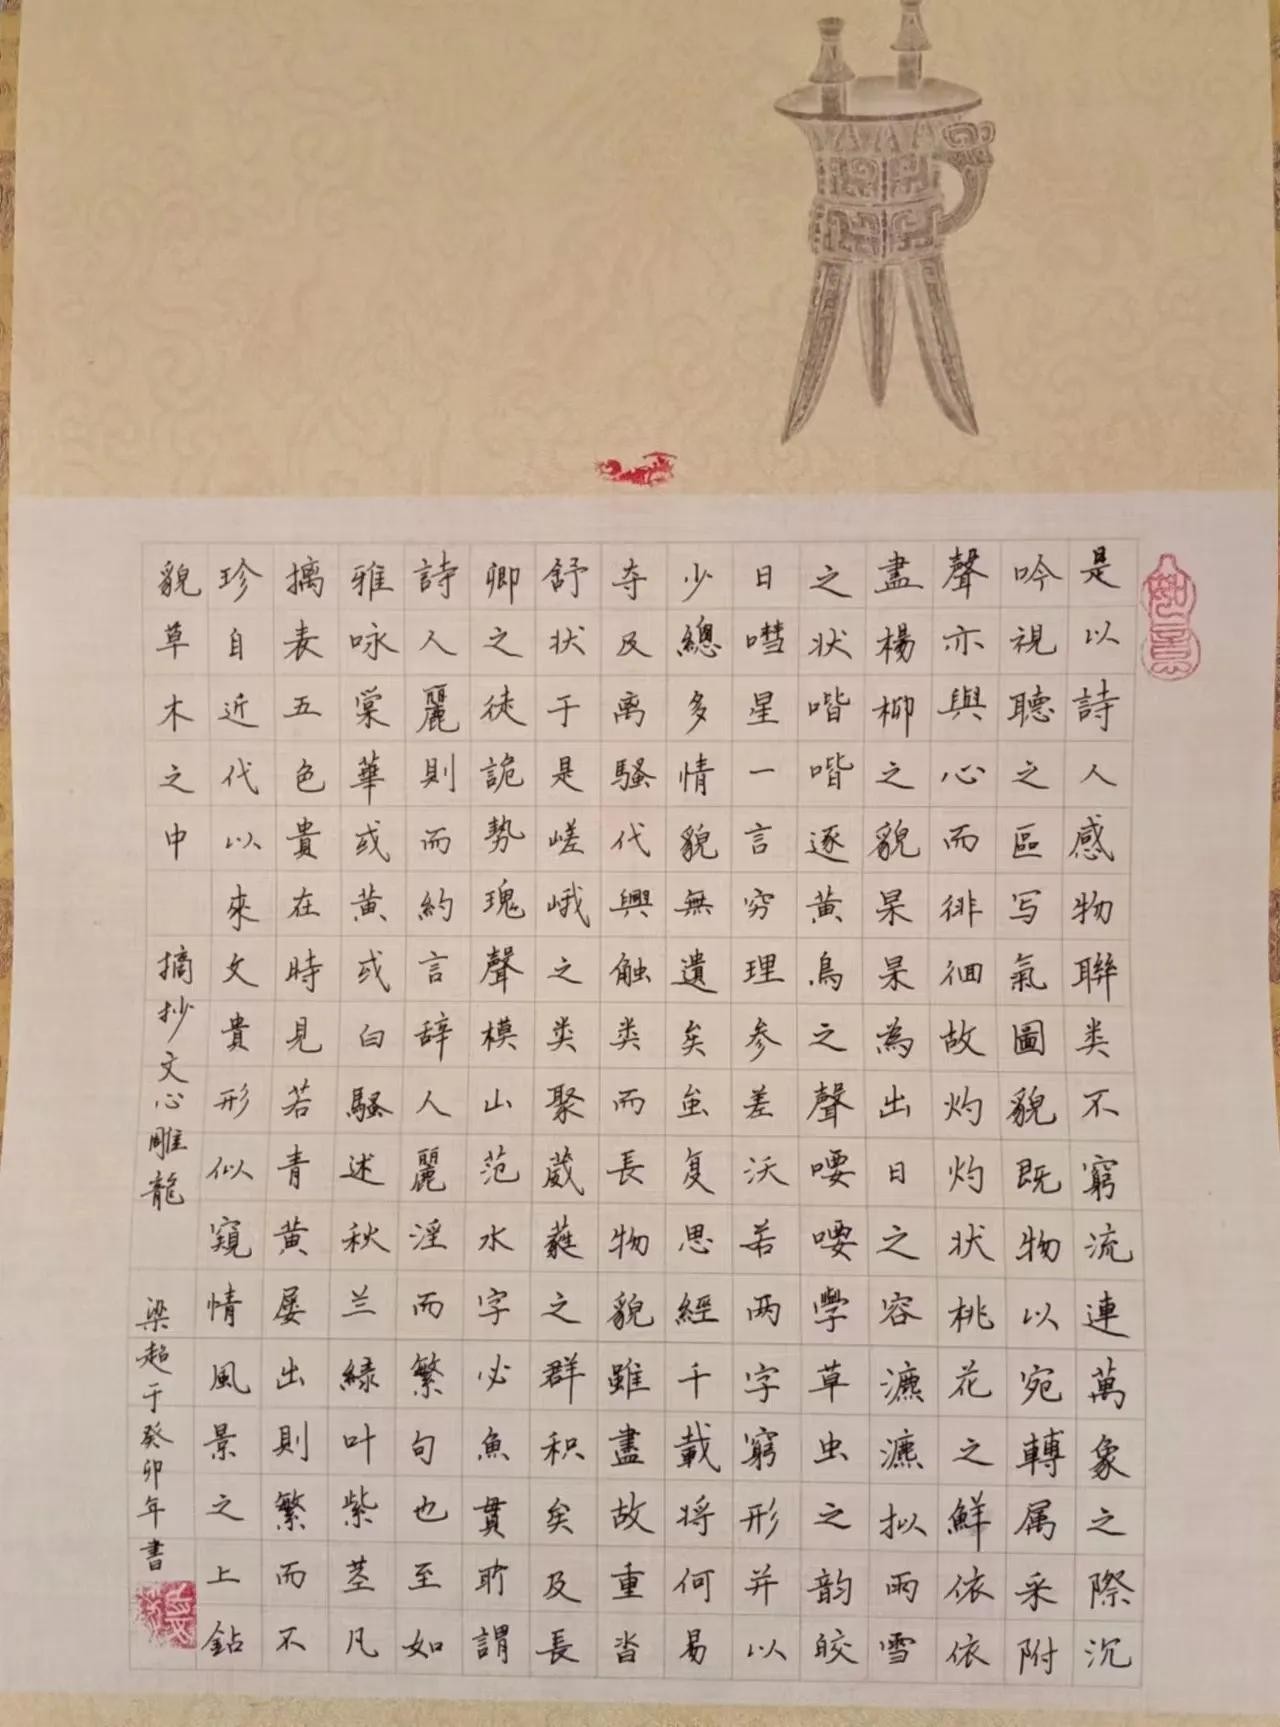 是以詩人感物聯类不窮流連萬象之際沉
吟視聽之區写氣圖貌既物以宛轉属采附
聲亦與心而徘徊故灼灼状桃花之鮮依依
盡楊柳之貌杲杲為出日之容瀌瀌拟雨雪
之状喈喈逐黄鳥之聲喓喓學草虫之韵皎
日嘒星一言穷理参差沃若两字窮形并以
少總多情貌無遺矣虽复思經千載将何易
夺及离騷代興触类而長物貌雖盡故重沓
舒状于是嵯峨之类聚葳蕤之群积矣及長
卿之徒詭勢瑰聲模山范水字必魚貫所謂
詩人麗則而約言辞人麗淫而繁句也至如
雅咏棠華或黄或白騷述秋兰緑叶紫茎凡
摛表五色貴在時見若青黄屡出則繁而不
珍自近代以來文貴形似窺情風景之上鉆
貌草木之中
摘抄文心雕龍
梁超于癸卯年書